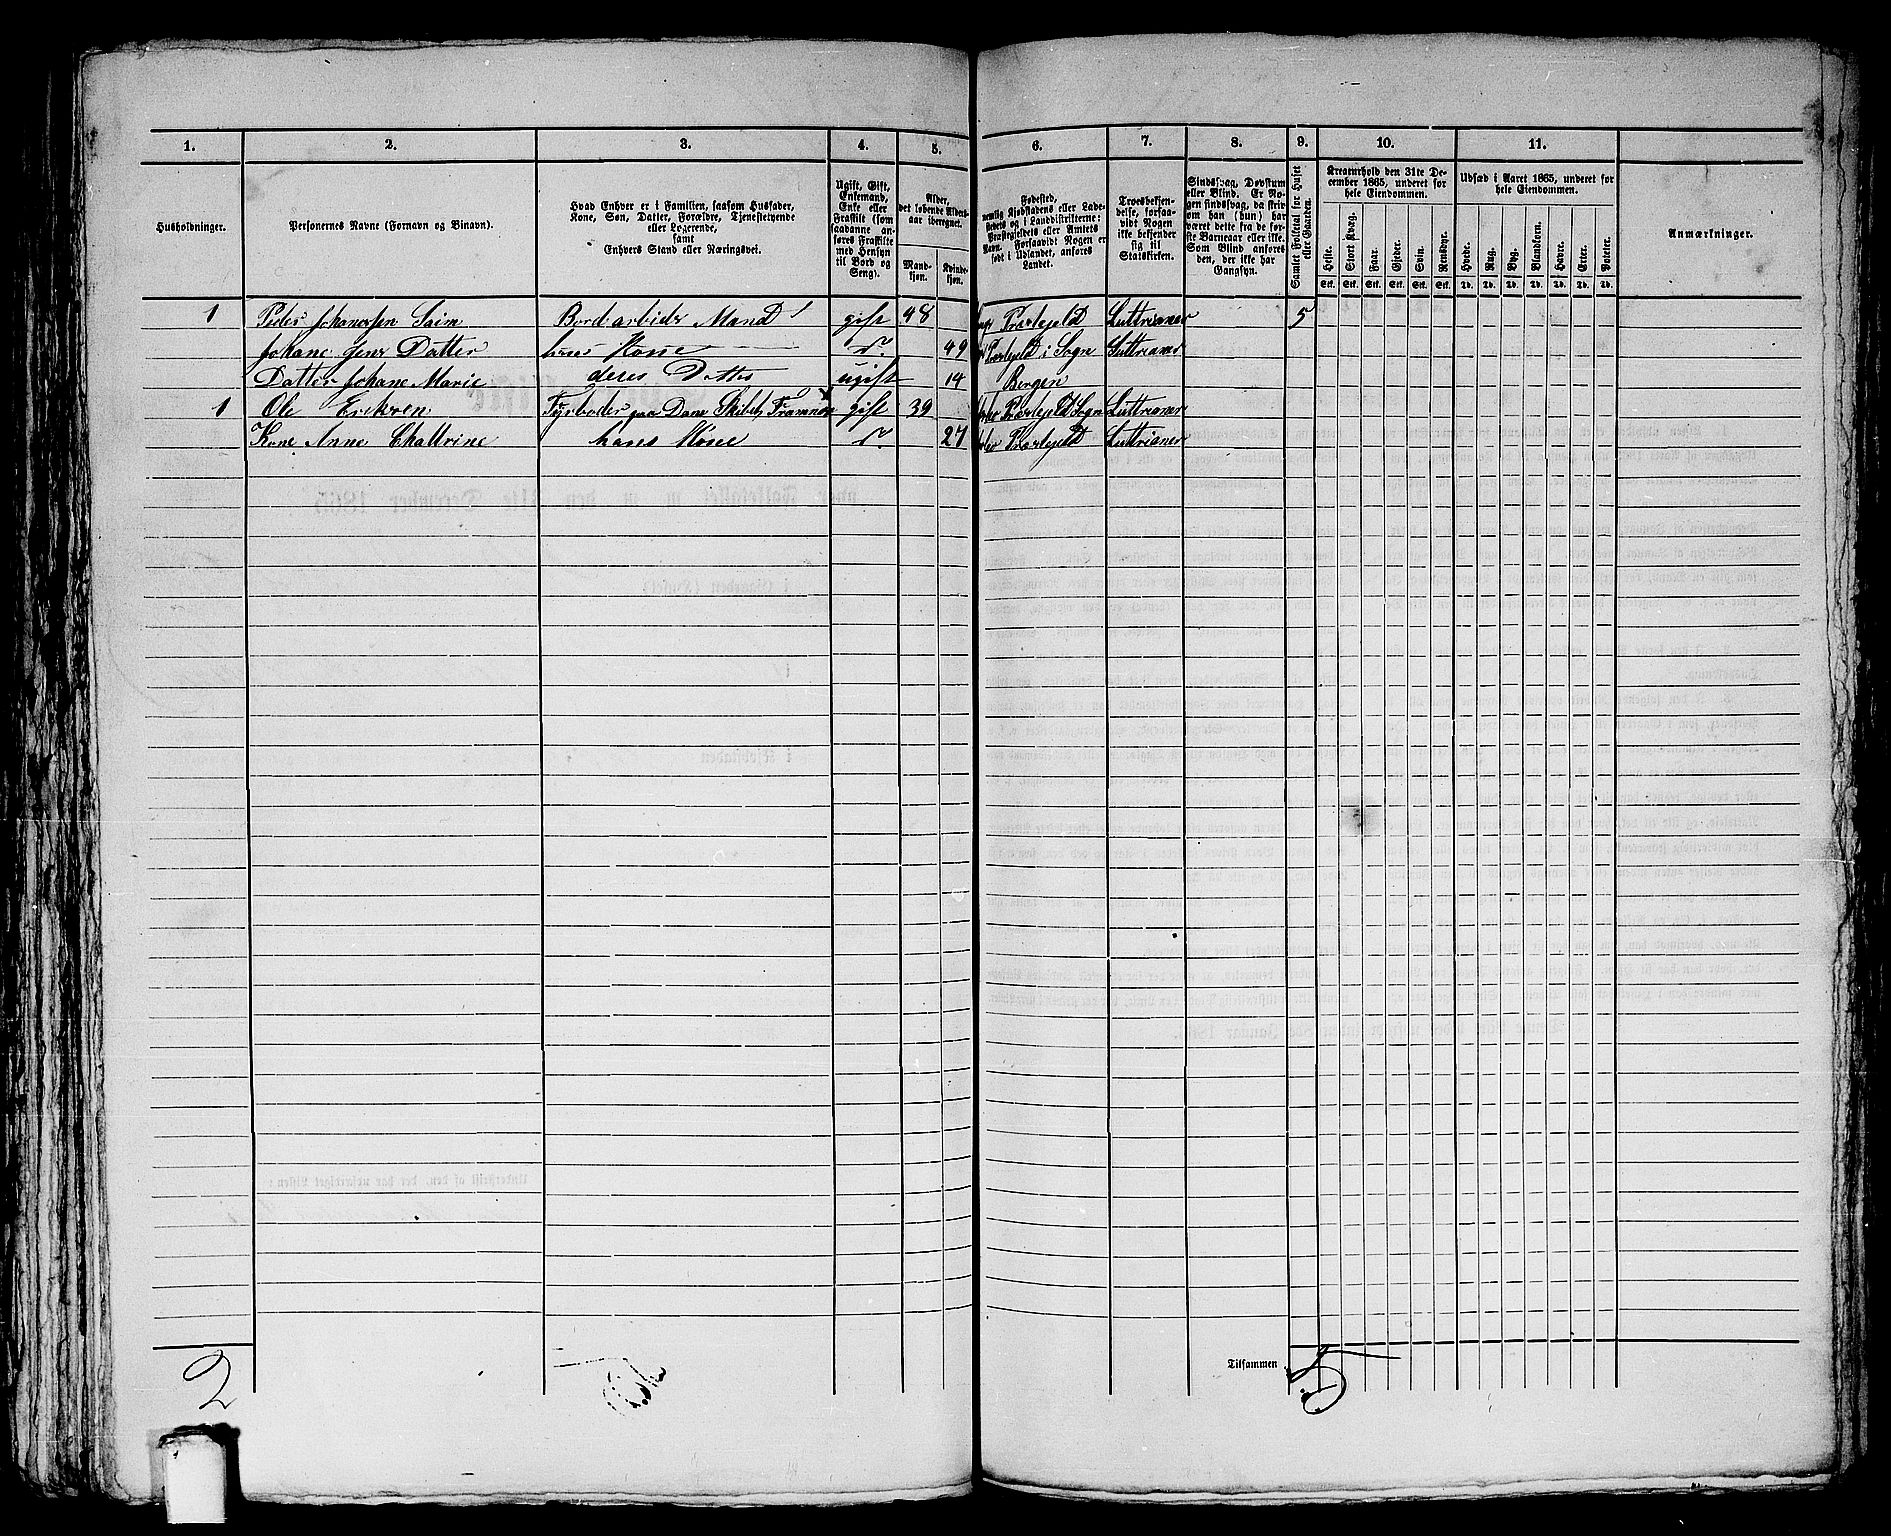 1. 2. 3. 4. 5. 6. 7. 8. 9. 10. 11.
Husholdninger.
Personernes Navne (Fornavn og Binavn).
Hvad Enhver er i Familien, saasom Husfader,
Kone, Søn, Datter, Forældre, Tjenestetyende
eller Logerende,
samt
Enhvers Stand eller Næringsvei.
Ugift, Gift,
Enkemand,
Enke eller
Fraskilt (som
saadanne an-
føres Fraskilte
med Hensyn
til Bord og
Seng).
Alder,
det løbende Alders-
aar iberegnet.
Mand-
kjøn.
Kvinde-
kjøn.
Fødested,
nemlig Kjøbstadens eller Lade-
stedets og i Landdistrikterne:
Præstegjeldets eller Amtets
Navn. Forsaavidt Nogen er
født i Udlandet, anføres
Landet.
Troesbekjen-
delse, forsaa-
vidt Nogen
ikke bekjender
sig til
Statskirken.
Sindssvag, Døvstum
eller Blind. Er No-
gen sindssvag, da skriv
om han (hun) har
været dette fra de før-
ste Barneaar eller ikke.
Som Blind anføres
den, der ikke har
Gangsyn.
Samlet Folketal for Huset
eller Gaarden.
Kreaturhold den 31te De-
cember 1865, underet for
hele Eiendommen.
Heste. Stort Kvæg. Faar. Gjeder. Svin. Rensdyr.
Stk. Stk. Stk. Stk. Stk. Stk.
Udsæd i Aaret 1865, underet for
hele Eiendommen.
Hvede. Rug. Byg. Blandkorn. Havre. Erter. Poteter.
Td. Td. Td. Td. Td. Td. Td.
Anmærkninger.
1 Peder Johanessen Saim Bordarbider Mand gift 48 Præstejeld Luttrianer 5
Johane Jens Datter hans Kone do. 49 Præstejeld i Sogn Luttrianer
Datter Johane Marie deres Datter ugift 14 Bergen
1 Ole Ericksen Fyrboder paa Damp Skibet Framnæs gift 39 Præstejeld Sogn Luttrianer
Kone Anne Chattrine hans Kone do. 27 Præstejeld Luttrianer
Tilsammen
2